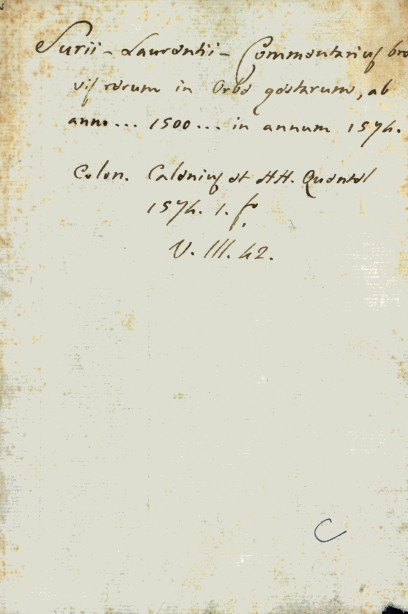 Surii - Laurentii - Commentarius bre
vis rerum in Orbe gestarum, ab
anno ... 1500 ... in annum 1574.
Colon. Calenius et HH. Quentel
1574. 1. f.
V. III. 42.
C